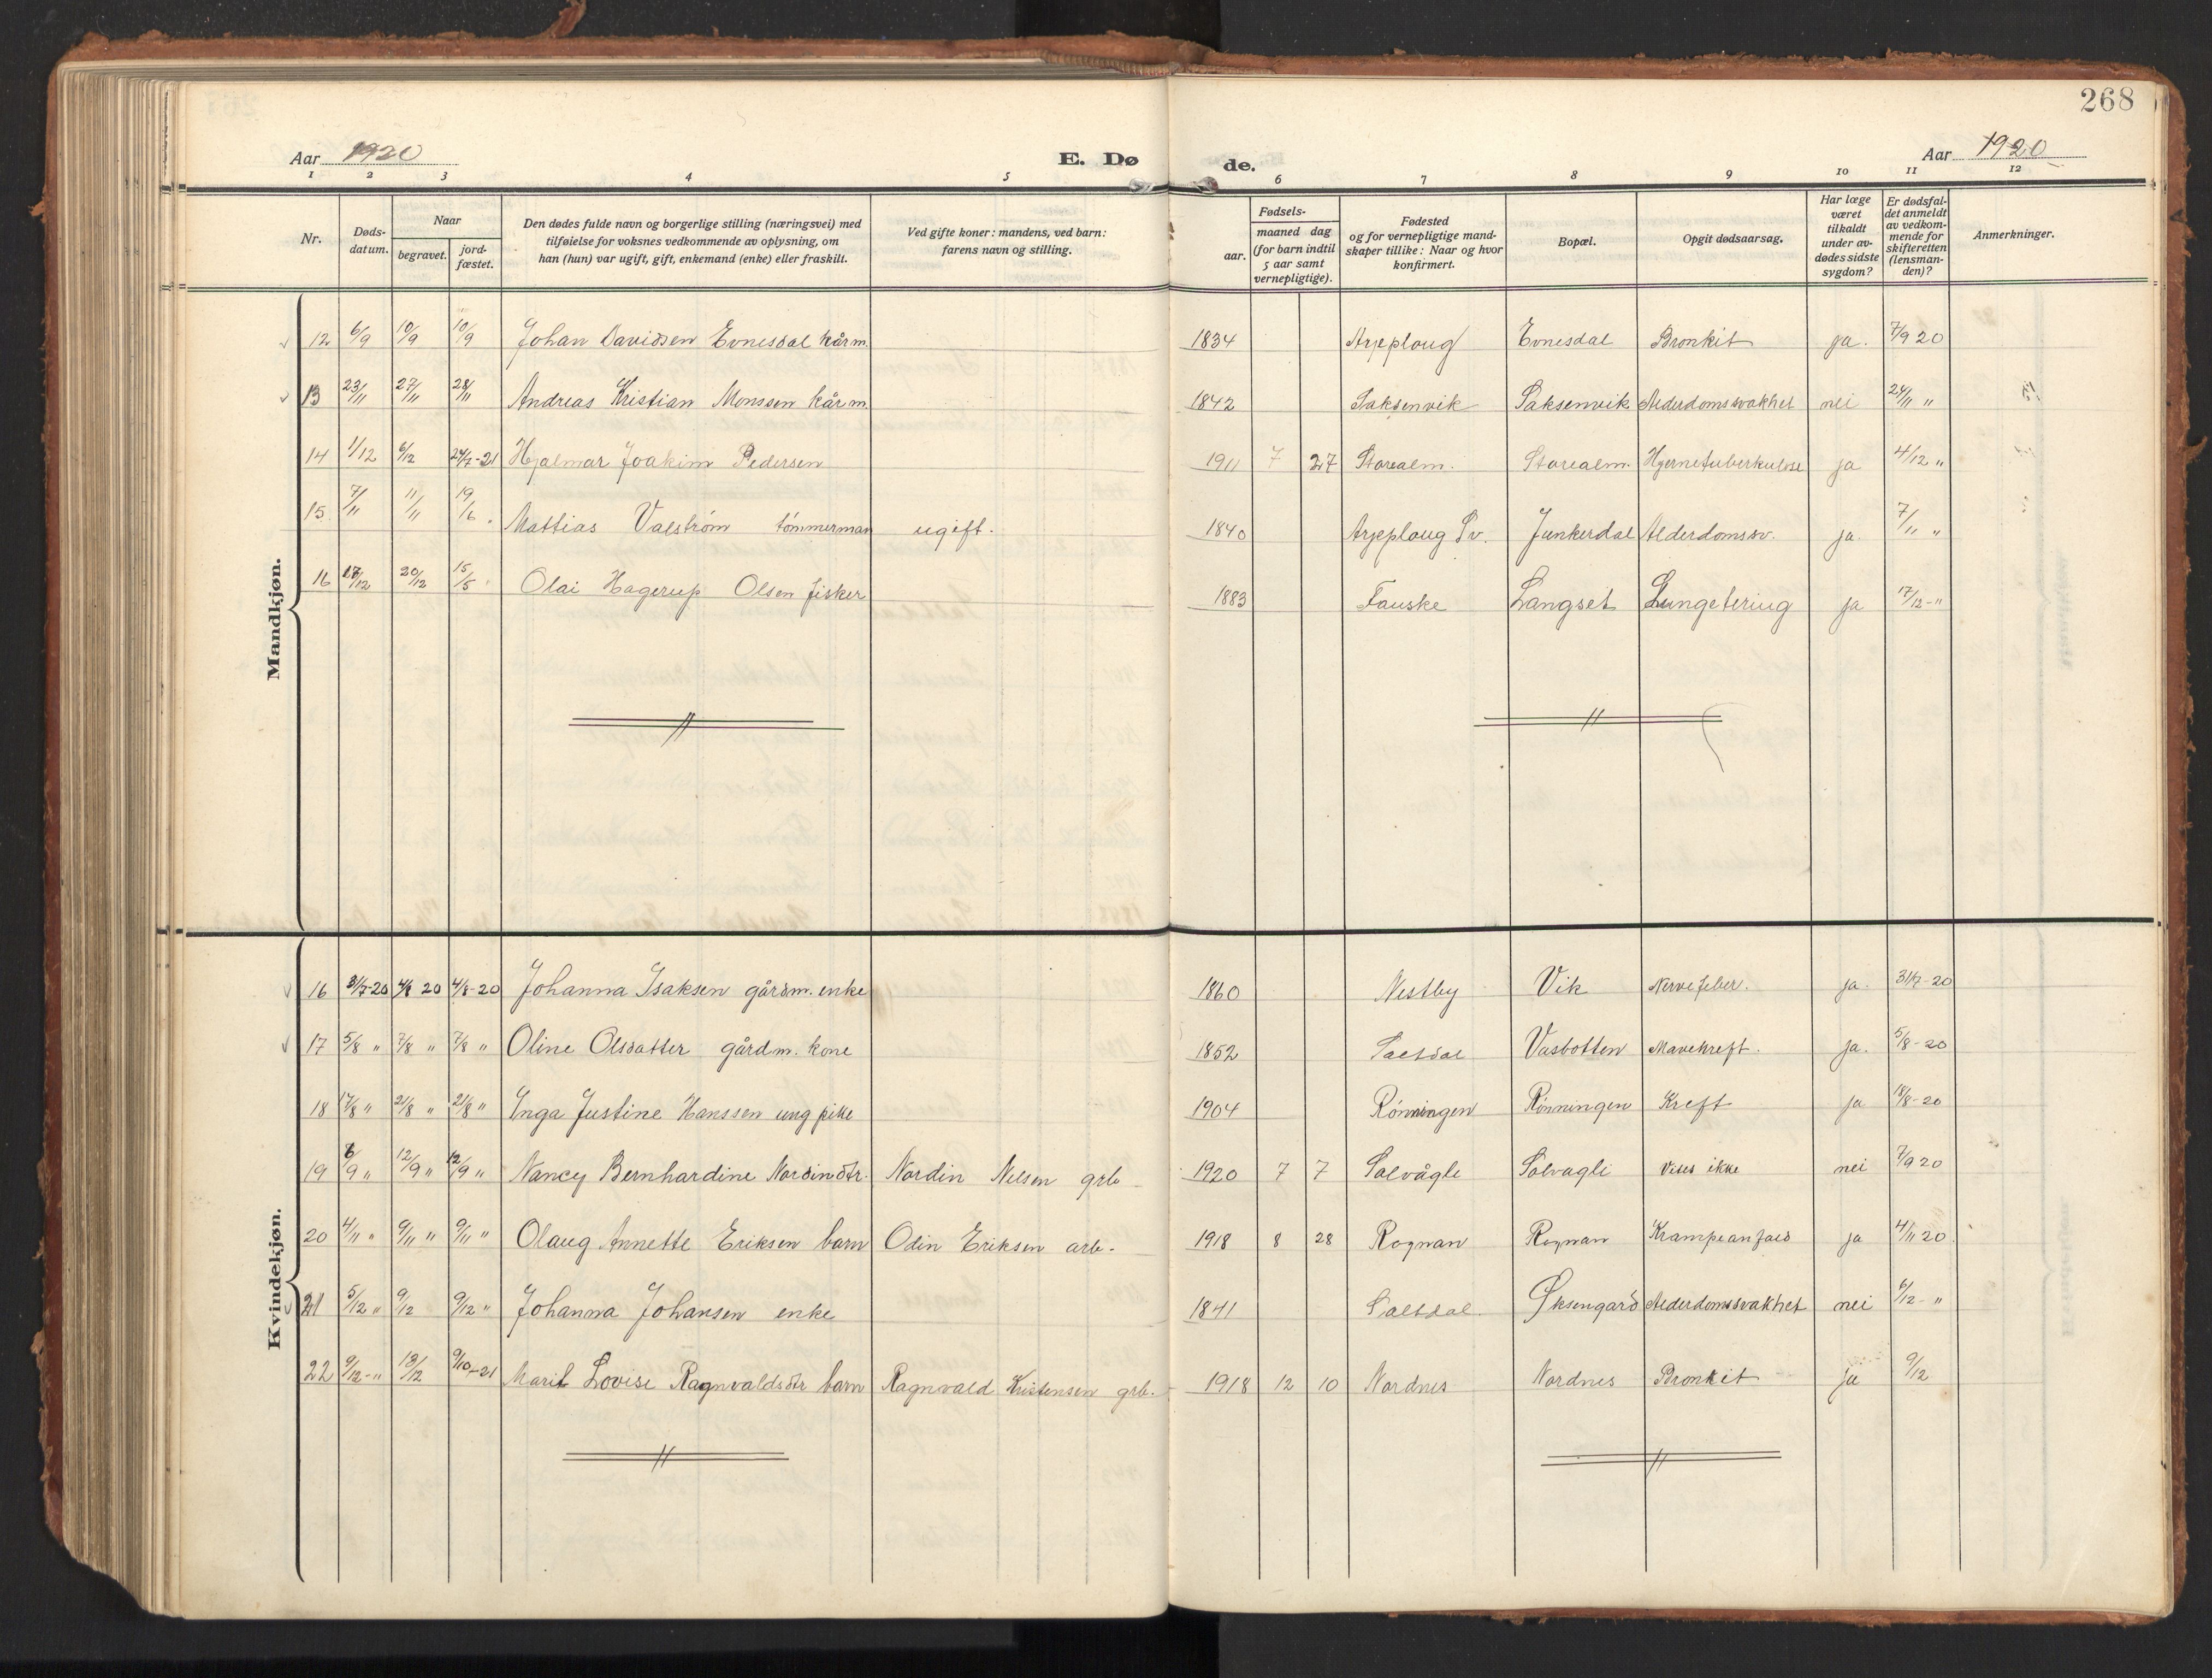 268
Aar 1920 E. Døde. Aar 1920
1 2 3 4 5 6 7 8 9 10 11 12
Nr. Døds-datum. Naar begravet. jord-fæstet. Den dødes fulde navn og borgerlige stilling (næringsvei) med tilføielse for voksnes vedkommende av oplysning, om han (hun) var ugift, gift, enkemand (enke) eller fraskilt. Ved gifte koner: mandens, ved barn: farens navn og stilling. Fødsels- aar. maaned dag (for barn indtil 5 aar samt vernepligtige). Fødested og for vernepligtige mand-skaper tillike: Naar og hvor konfirmert. Bopæl. Opgit dødsaarsag. Har læge været tilkaldt under av-dødes sidste sygdom? Er dødsfal-det anmeldt av vedkom-mende for skifteretten (lensman-den)? Anmerkninger.
Mandkjøn.
12 6/9 10/9 10/9 Johan Davidsen Evnesdal kårm. 1834 Arjeploug Evnesdal Bronkit ja. 7/9 20
13 23/11 27/11 28/11 Andreas Kristian Monssen kårm. 1842 Saksenvik Saksenvik Alderdomssvakhet nei 24/11 "
14 1/12 6/12 24/7-21 Hjalmar Joakim Pedersen 1911 7 27 Storealm. Storealm. Hjernetuberkulose ja 4/12 "
15. 7/11 11/11 19/6. Mattias Valstrøm tømmerman ugift. 1840 Arjeploug Sv. Junkerdal Alderdomssv. ja. 7/11 "
16 17/12 20/12 15/5 Olai Hagerup Olsen fisker 1883 Fauske Langset Lungetering ja 17/12-"
Kvindekjøn.
16 31/7-20 4/8 20 4/8-20 Johanna Isaksen gårdm. enke 1860 Nestby Vik Nervefeber. ja. 31/7-20
17 5/8 " 7/8 " 7/8 " Oline Olsdatter gårdm. kone 1852 Saltdal Vasbotten Mavekreft. ja. 5/8-20
18 17/8 " 21/8 " 21/8 " Inga Justine Hanssen ung pike 1904 Rønningen Rønningen Kreft ja 18/8-20
19 6/9 " 12/9 " 12/9 " Nancy Bernhardine Nordindtr. Nordin Nilsen grb 1920 7 7 Solvågle Solvagli vites ikke nei 7/9 20
20 4/11 " 9/11 " 9/11 " Olaug Annette Eriksen barn Odin Eriksen arb. 1918 8 28 Rognan Rognan Krampeanfald ja 4/11 20.
21 5/12 " 9/12 9/12 " Johanna Johansen enke 1841 Saltdal. Øksengård Alderdomssvakhet nei 6/12-"
22 9/12-" 13/12 9/10-21 Marit Lovise Ragnvaldsdtr barn Ragnvald Kristensen grb. 1918 12 10 Nordnes Nordnes Bronkit ja 9/12